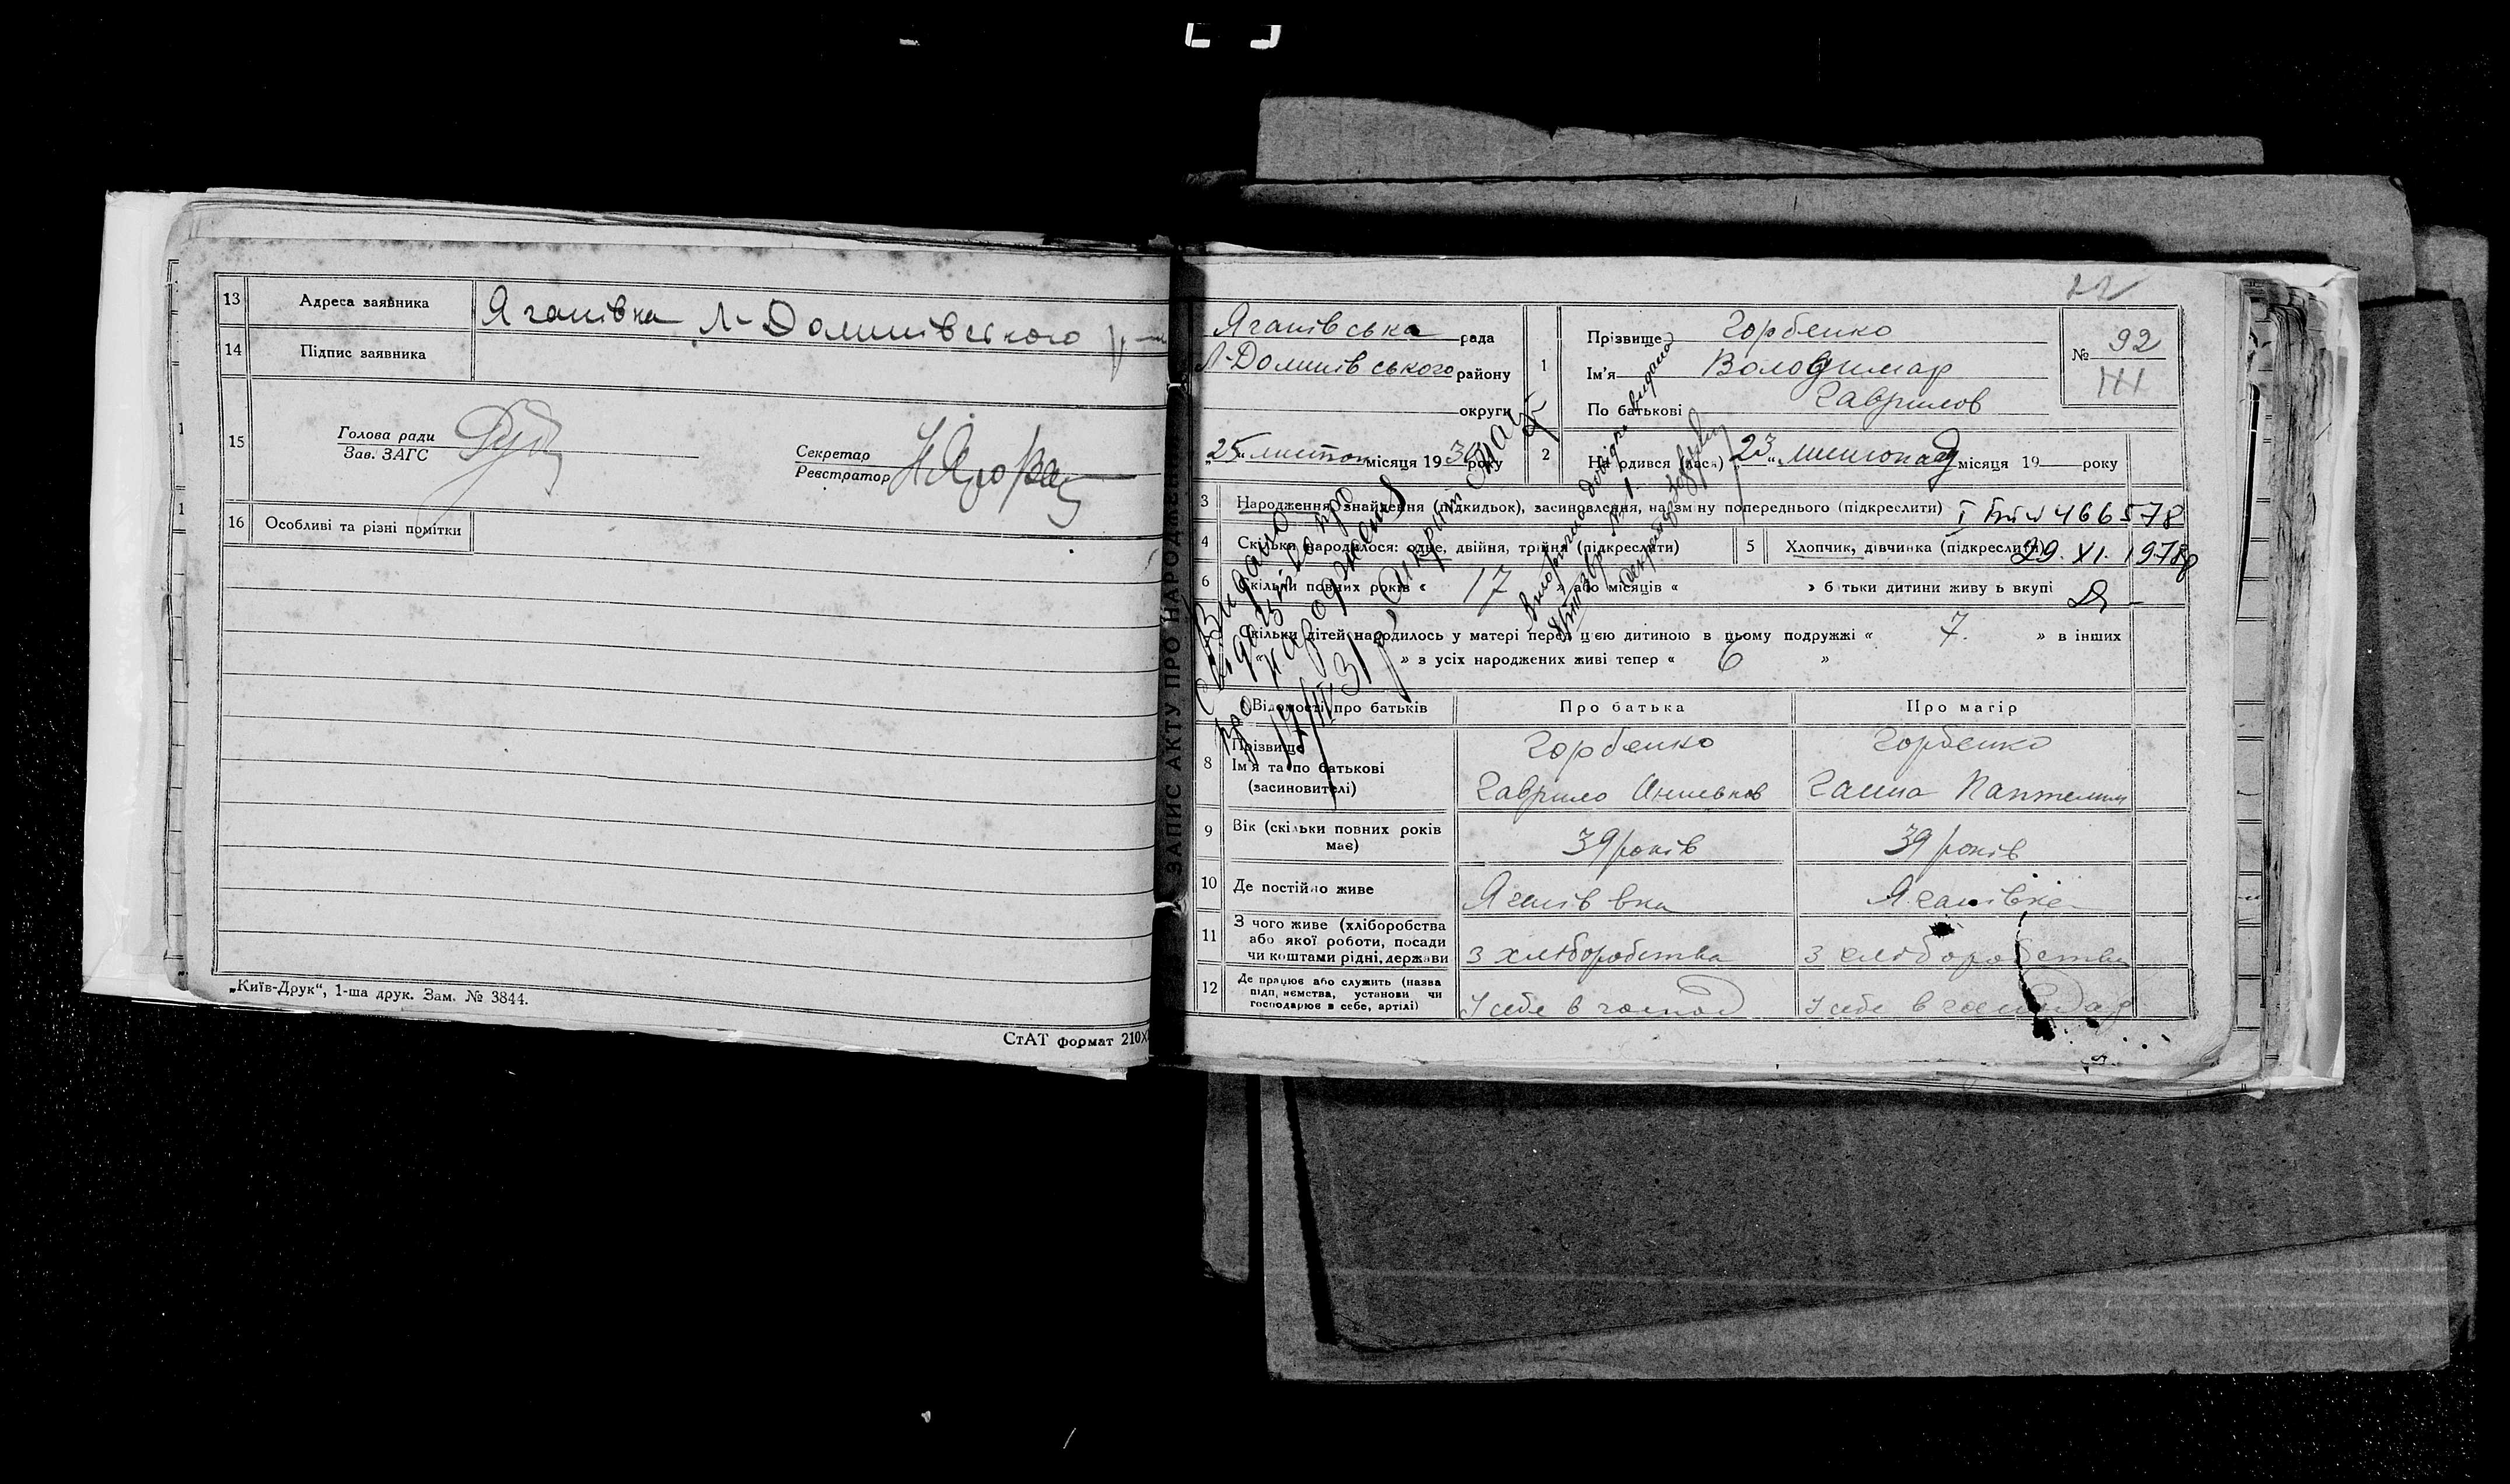 13 Адреса заявника Яганівка Л-Долинівського
14 Підпис заявника
15 Голова ради
Зав. ЗАГС
Секретар
Реєстратор
16 Особливі та різні помітки
„Київ-Друк“, 1-ша друк. Зам. № 3844.
СтАТ формат 210
ЗАПИС АКТУ ПРО НАРОДЖЕННЯ
22
Яганівська рада
Л-Долинівського району
округи
„25“ листоп місяця 1930 року
1 Прізвище Горбенко
Ім'я Володимар
По батькові Гаврилов
№ 92
2 Народився (лася) „23“ листопад місяця 19 року
3 Народження, знайдення (підкидьок), засиновлення, на зміну попереднього (підкреслити) 466578
4 Скільки народилося: одне, двійня, трійня (підкреслити) 5 Хлопчик, дівчинка (підкреслити) 29. XI. 1978р
6 Скільки повних років « 17 » або місяців « » батьки дитини живуть вкупі
Скільки дітей народилось у матері перед цією дитиною в цьому подружжі « 7. » в інших
» з усіх народжених живі тепер « 6 »
Видано
про народження
Відомості про батьків Про батька Про матір
8 Прізвище Горбенко Горбенко
Ім'я та по батькові Гаврило Ганна
(засновителі)
9 Вік (скільки повних років має) 39 років 39 років
10 Де постійно живе Яганівка Яганівка
11 З чого живе (хліборобства
або якої роботи, посади
чи коштами рідні, держави З хліборобства З хліборобства
12 Де працює або служить (назва
підприємства, установи чи
господарює в себе, артілі) У себе в господ У себе в господар